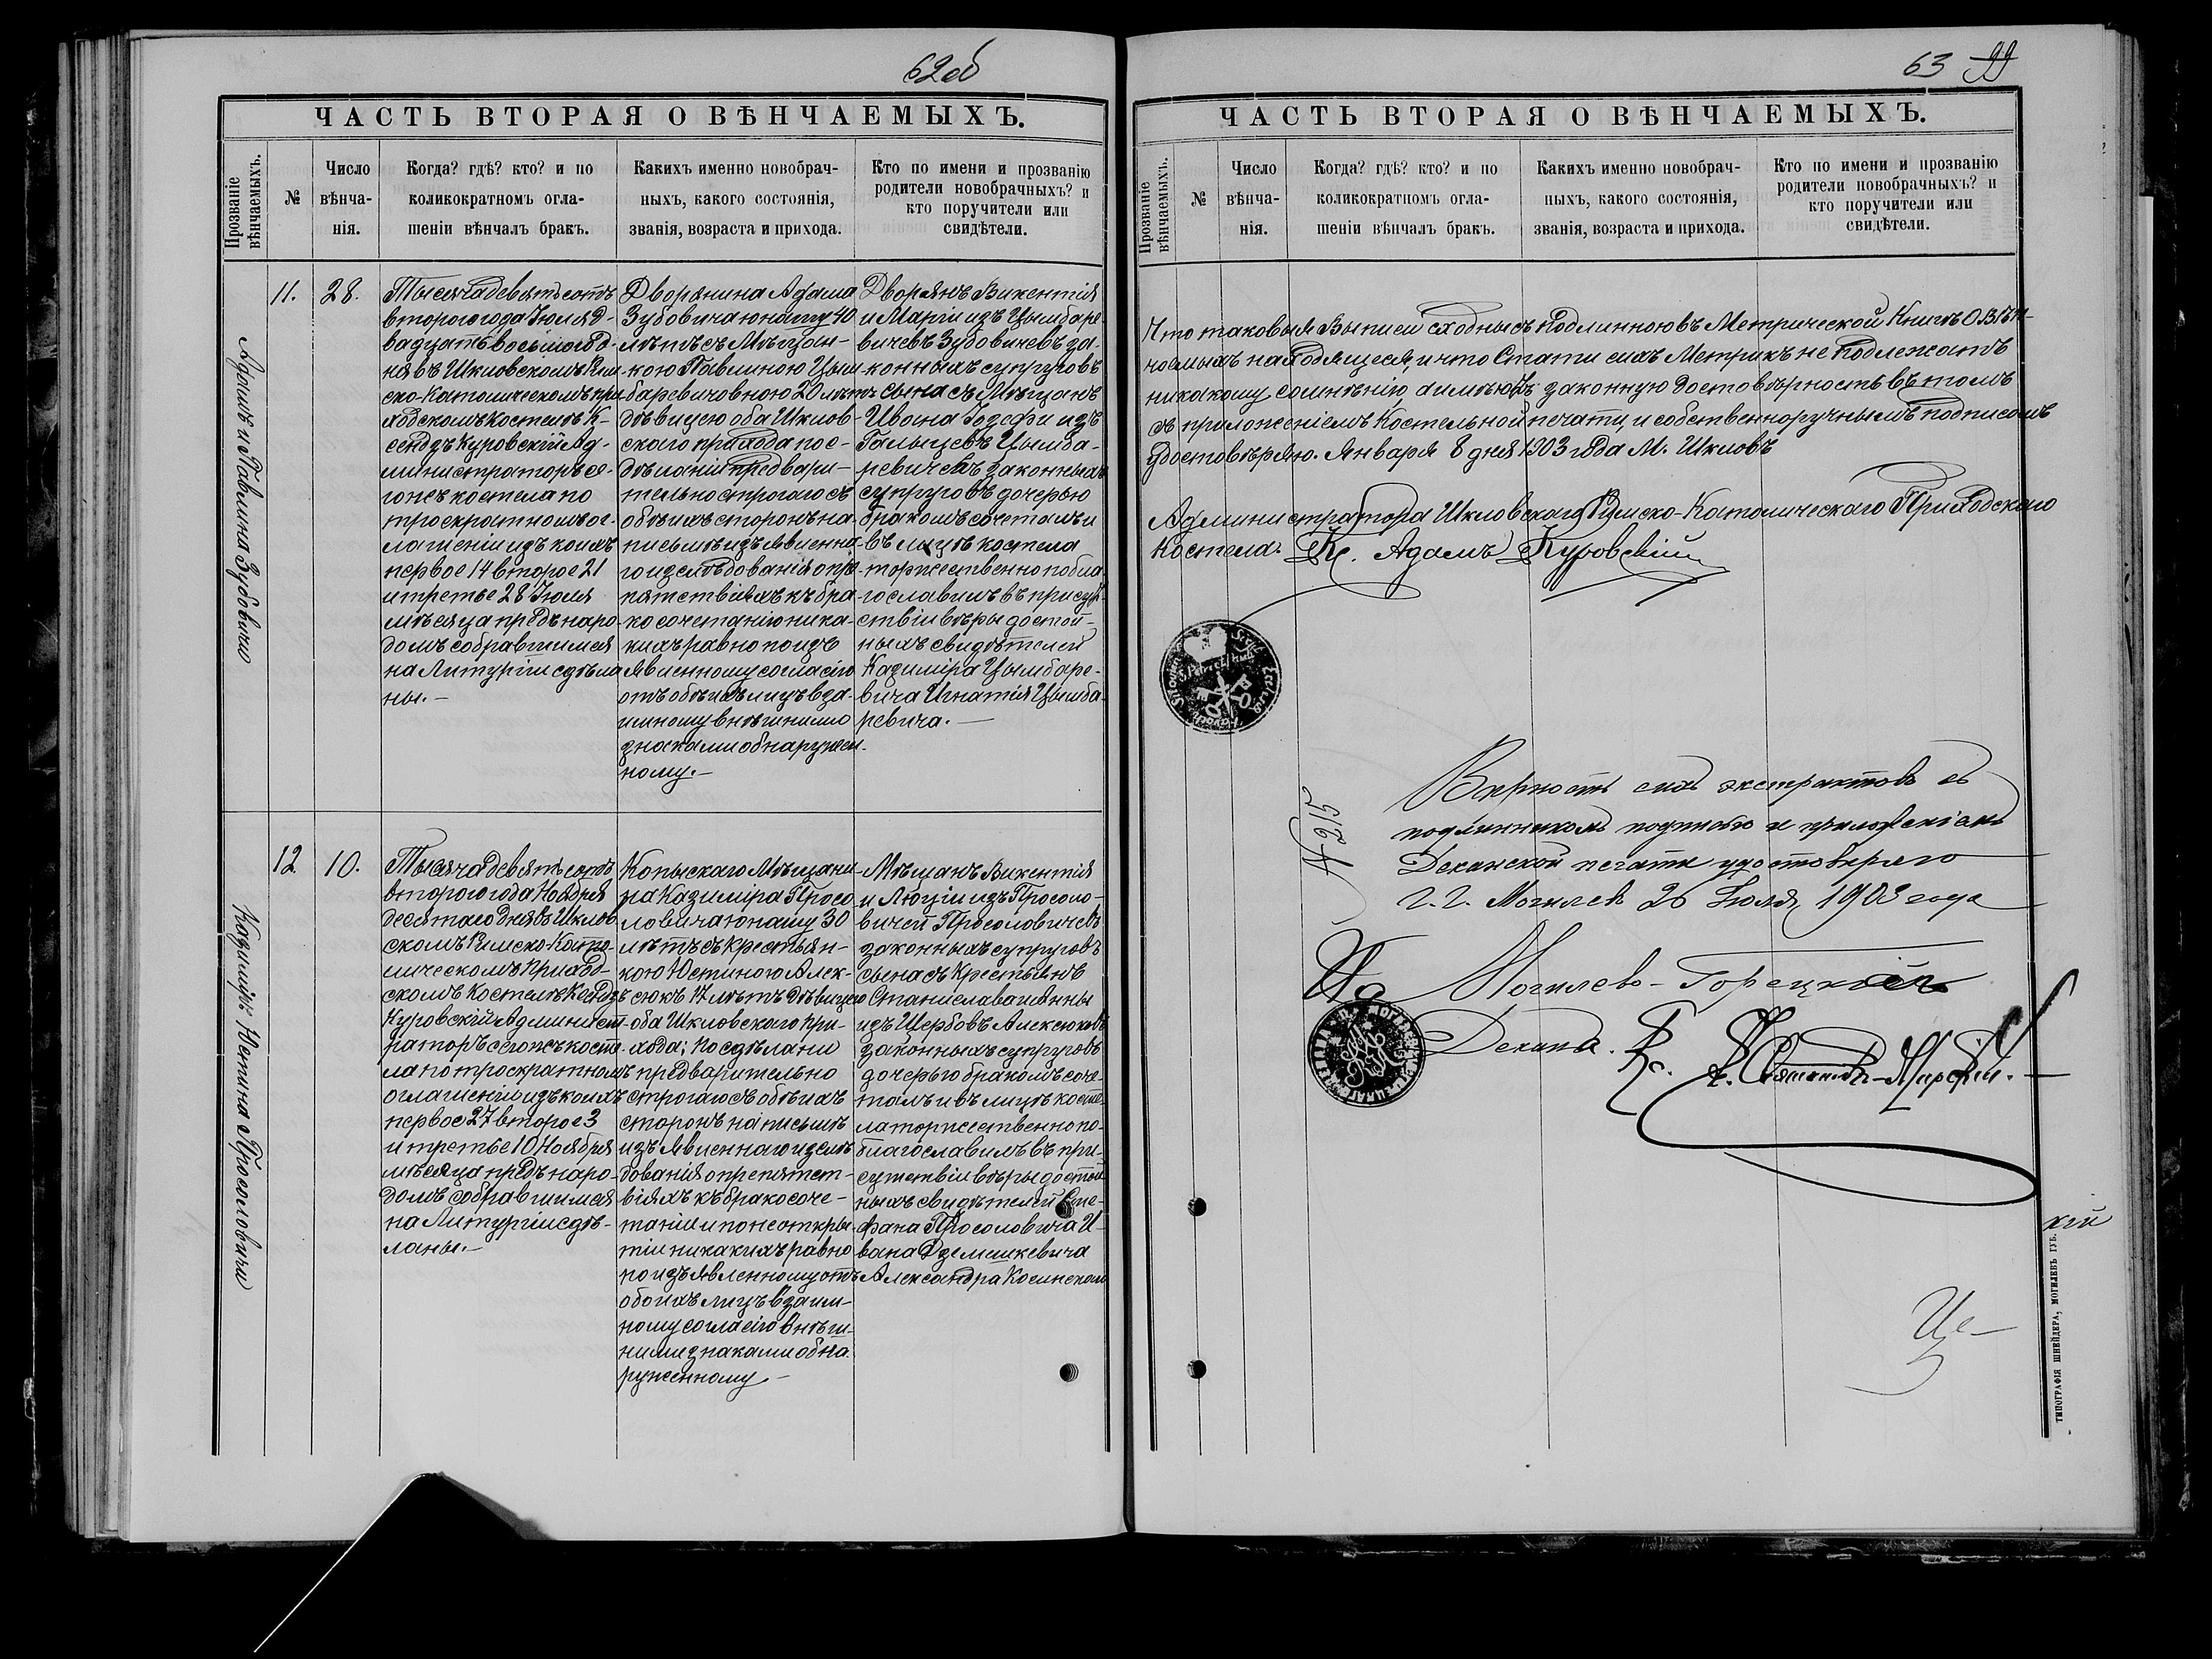 62об
ЧАСТЬ ВТОРАЯ О ВѢНЧАЕМЫХЪ.
Прозваніе вѣнчаемыхъ.
№
Число вѣнча-нія.
Когда? гдѣ? кто? и по
коликократномъ огла-
шеніи вѣнчалъ бракъ.
Какихъ именно новобрач-
ныхъ, какого состоянія,
званія, возраста и прихода.
Кто по имени и прозванію
родители новобрачныхъ? и
кто поручители или
свидѣтели.
Адамъ и Павлина Зубовичи
11.
28.
Тысяча девятьсотъ
второго года Іюля д-
вадцать восьмого д-
ня въ Шкловскомъ Рим-
ско-Католическомъ при-
ходскомъ Костелѣ К-
сендзъ Куровскій Ад-
министраторъ се-
гожъ костела по
троекратномъ ог-
лашеніи изъ коихъ
первое 14 второе 21
и третье 28 Іюля
мѣсяца предъ наро-
домъ собравшимся
на Литургіи сдѣла
ны.-
Дворянина Адама
Зубовича юношу 40
лѣтъ съ Мѣщан-
кою Павлиною Цым
баревичовною 20 лѣтъ
дѣвицею оба Шклов-
скаго прихода пос-
дѣланіи предвари-
тельно строгаго съ
обѣихъ сторонъ на
письмѣ изъявленна-
го изслѣдованія о пре-
пятствіяхъ къ бра-
косочетанію ника-
кихъ равно по изъ
явленному согласію
отъ обѣихъ лицъ вза-
имному внѣшними
знаками обнаружен-
ному.-
Дворянъ Викентія
и Маріи изъ Цымбаре-
вичевъ Зубовичевъ за-
конныхъ супруговъ
сына съ Мѣщанъ
Ивана Іозефы изъ
Гальцевъ Цымба-
ревичевъ законныхъ
супруговъ дочерью
бракомъ сочеталъ и
въ лицѣ костела
торжественно побла-
гославилъ въ присут-
ствіи вѣры достой-
ныхъ свидѣтелей
Казиміра Цымбаре-
вича Игнатія Цымба-
ревича.-
Казиміръ Юстина Просоловичи
12
10.
Тысяча девятьсотъ
второго года Ноября
десятаго дня въ Шклов
скомъ Римско-Като-
лическомъ приход-
скомъ Костелѣ Ксендзъ
Куровскій Админист-
раторъ сегожъ косте-
ла по троекратномъ
оглашеніи изъ коихъ
первое 27 второе 3
и третье 10 Ноября
мѣсяца предъ наро-
домъ собравшимся
на Литургіи сдѣ-
ланы.-
Копыскаго Мѣщани-
на Казиміра Просо-
ловича юношу 30
лѣтъ съ крестьян-
кою Юстиною Алек-
сюкъ 17 лѣтъ дѣвицею
оба Шкловскаго при-
хода; по сдѣлани
предварительно
строгаго съ обѣихъ
сторонъ на письмѣ
изъявленнаго изслѣ
дованія о препятст-
віяхъ къ бракосоче-
танію и по неоткры-
тіи никакихъ равно
по изъявленному отъ
обоихъ лицъ взаим-
ному согласію внѣш-
ними знаками обна
руженному.-
Мѣщанъ Викентія
и Люціи изъ Просоло-
вичей Просоловичевъ
законныхъ супруговъ
сына съ Крестьянъ
Станислава и Анны
изъ Щербовъ Алексюковъ
законныхъ супруговъ
дочерью бракомъ соче-
талъ и въ лицѣ косте-
ла торжественно по-
благославилъ въ при-
сутствіи вѣры достой-
ныхъ свидѣтелей Сте-
фана Просоловича И-
вана Дземешкевича
Александра Косинскаго
63 99
ЧАСТЬ ВТОРАЯ О ВѢНЧАЕМЫХЪ.
Прозваніе вѣнчаемыхъ.
№
Число вѣнча-нія.
Когда? гдѣ? кто? и по
коликократномъ огла-
шеніи вѣнчалъ бракъ.
Какихъ именно новобрач-
ныхъ, какого состоянія,
званія, возраста и прихода.
Кто по имени и прозванію
родители новобрачныхъ? и
кто поручители или
свидѣтели.
Что таковыя Выписи сходны съ Подлинною въ Метрической Книгѣ О Вѣн-
чаемыхъ находящеся, и что Стати сихъ Метрикъ не подлежатъ
никакому сомнѣнію, а имѣютъ законную достовѣрность въ томъ
съ приложеніемъ Костельной печати, и собственноручнымъ подписомъ
удостовѣряю. Января 8 дня 1903 года М. Шкловъ
Администратора Шкловскаго Римско-Католическаго Приходскаго
Костела Кс. Адамъ Куровскій
№ 215
Вѣрность сихъ экстрактовъ съ
подлинникомъ подписью и приложеніемъ
Деканской печати удостовѣряю
Г. Г. Могилев 26 Іюля 1903 года
Могилево-Горецкій
Декана. Кс.
кій
ТИПОГРАФІЯ ШНЕЙДЕРА, МОГИЛЕВЪ ГУБ.